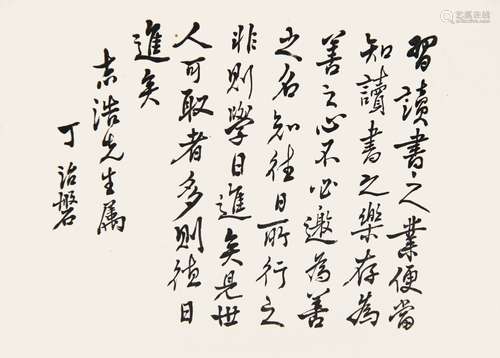 習讀書之業便當
知讀書之樂存為
善之心不必邀為善
之名知往日所行之
非則學日進矣見世
人可取者多則德日
進矣
志浩先生属
丁治磐